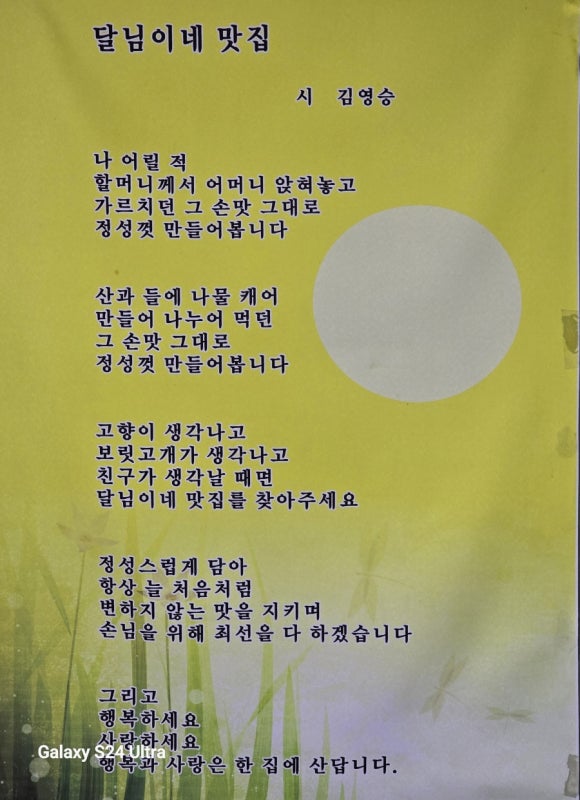 달님이네 맛집
시 김영승
나 어릴 적
할머니께서 어머니 앉혀놓고
가르치던 그 손맛 그대로
정성껏 만들어봅니다
산과 들에 나물 캐어
만들어 나누어 먹던
그 손맛 그대로
정성껏 만들어봅니다
고향이 생각나고
보릿고개가 생각나고
친구가 생각날 때면
달님이네 맛집를 찾아주세요
정성스럽게 담아
항상 늘 처음처럼
변하지 않는 맛을 지키며
손님을 위해 최선을 다 하겠습니다
그리고
행복하세요
사랑하세요
Galaxy S24 Ultra
행복과 사랑은 한 집에 산답니다.